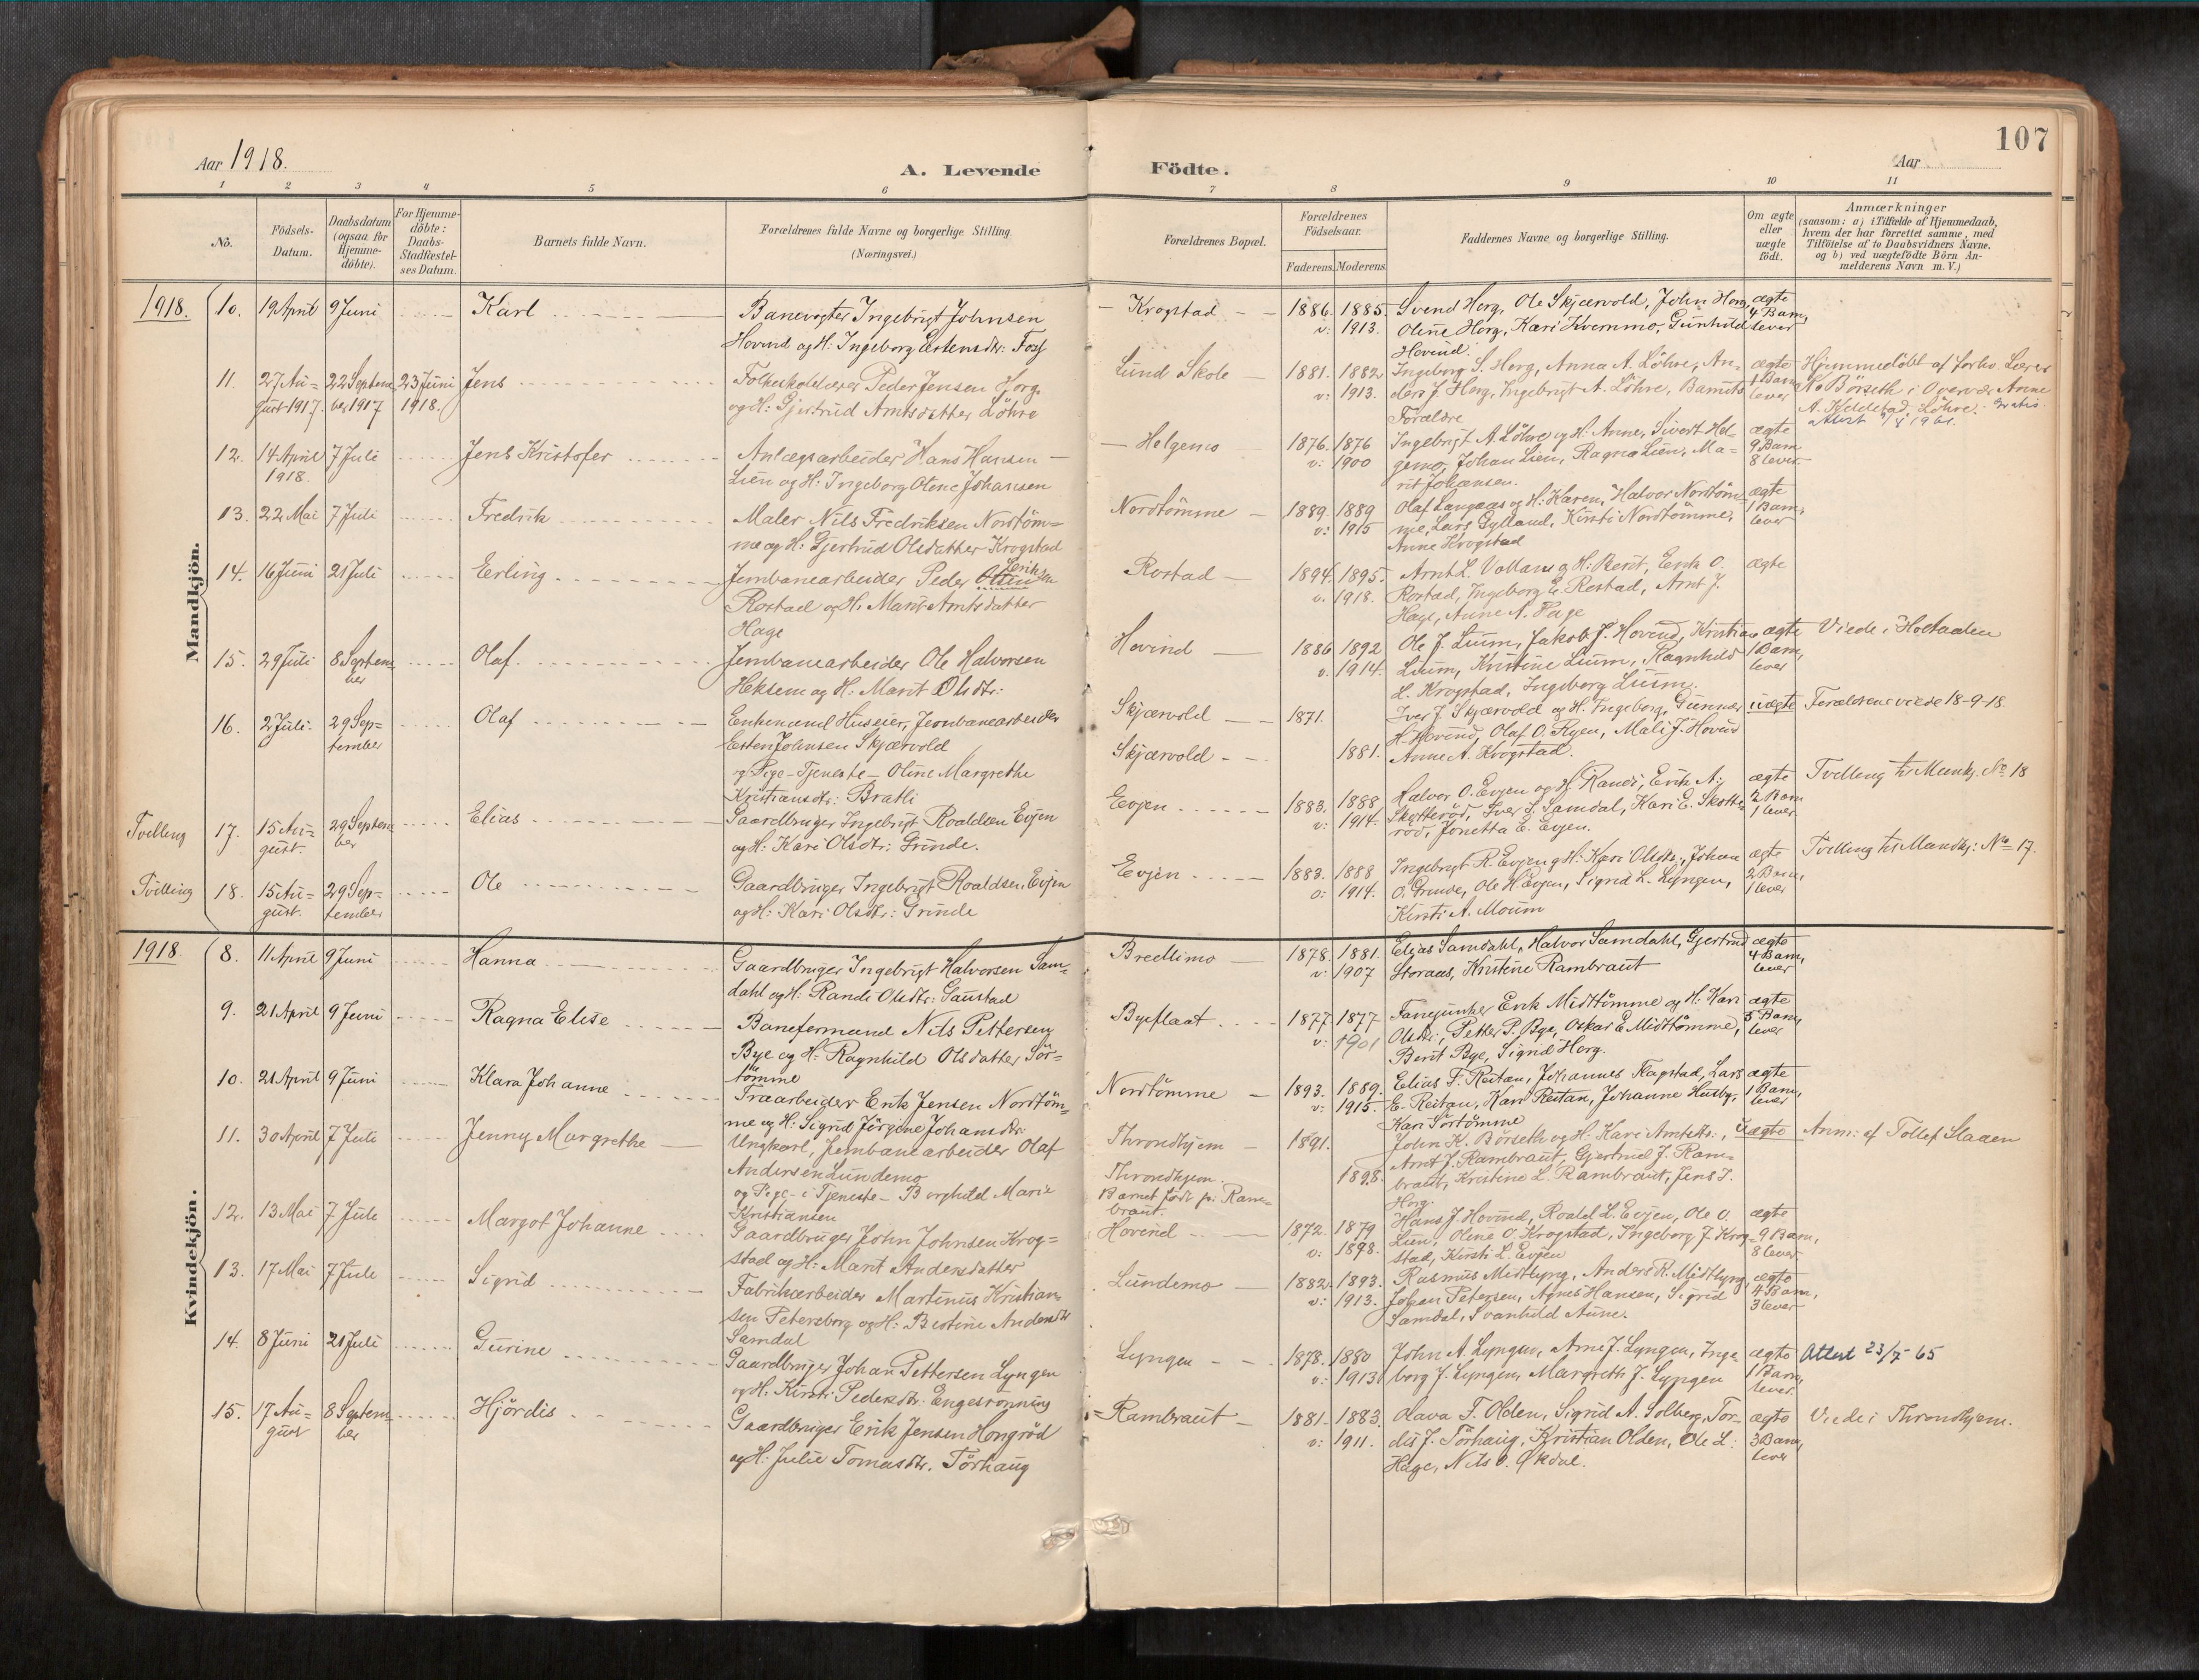 107
Aar 1918.
A. Levende Födte.
Aar
1 2 3 4 5 6 7 8 9 10 11
No.
Födsels-Datum.
Daabsdatum (ogsaa for Hjemme-döbte).
For Hjemme-döbte: Daabs-Stadfæstel-ses Datum.
Barnets fulde Navn.
Forældrenes fulde Navne og borgerlige Stilling (Næringsvei.)
Forældrenes Bopæl.
Forældrenes Födselsaar.
Faderens. Moderens.
Faddernes Navne og borgerlige Stilling.
Om ægte eller uægte födt.
Anmærkninger
(saasom: a) i Tilfælde af Hjemmedaab,
hvem der har forrettet samme, med
Tilföielse af to Daabsvidners Navne,
og b) ved uægtefödte Börn An-
melderens Navn m. V.)
Mandkjön.
1918. 10. 19 April 9 Juni Karl
Banevogter Ingebrigt Johnsen
Hovind og H: Ingeborg Estensdtr: Foss
Krogstad 1886. 1885. v: 1913.
Svend Horg, Ole Skjærvold, John Horg,
Oline Horg, Kari Kvernmo, Gunhild
Hovind.
ægte 4 Barn, lever
11. 27 Au=gust 1917. 22 Septem ber 1917 23 Juni 1918. Jens
Folkeskolelærer Peder Jensen Horg
og H: Gjertrud Arntsdatter Löhre
Lund Skole 1881. 1882 v: 1913.
Ingeborg S. Horg, Anna A. Löhre, An=
ders J. Horg, Ingebrigt A. Löhre, Barnets
Forældre
ægte 1 Barn lever
Hjemmedöbt af forhv. Lærer
Börseth i Overvær Anne
A. Löhre. Gratis.
Attest 1961.
12. 14 April 1918. 7 Juli Jens Kristofer
Anlægsarbeider Hans Hansen
Lien og H: Ingeborg Oline Johansen
Helgemo 1876. 1876 v: 1900
Ingebrigt A. Löhre og H: Anne, Sivert Hel=
gemo, Johan Lien, Ragna Lien, Ma=
rit Johansen.
ægte 9 Barn 8 lever
13. 22 Mai 7 Juli Fredrik
Maler Nils Fredriksen Nordtöm=
me og H: Gjertrud Olsdatter Krogstad
Nordtömme 1889. 1889 v: 1915
Olaf Langaas og H: Karen, Halvor Nordtöm=
me, Lars Gylland, Kirsti Nordtömme,
Anne Krogstad
ægte 1 Barn, lever
14. 16 Juni 21 Juli Erling
Jernbanearbeider Peder Olsen Eriksen
Rostad og H: Marit Arntsdatter
Hage
Rostad 1894. 1895. v. 1918.
Arnt L. Vollan og H: Berit, Erik O.
Rostad, Ingeborg E. Rostad, Arnt J.
Hage, Anne A. Hage
ægte
15. 29 Juli 8 Septem ber Olaf.
Jernbanearbeider Ole Halvorsen
Heksem og H: Marit Olsdtr:
Hovind 1886 1892 v. 1914.
Ole J. Lium, Jakob J. Hovind, Kristian
Lium, Kristine Lium, Ragnhild
L. Krogstad, Ingeborg Lium.
ægte 1 Barn, lever
Viede i Holtaalen
16. 2 Juli. 29 Sep=tember Olaf
Enkemand Huseier, Jernbanearbeider
Esten Johnsen Skjærvold
og Pige - Tjeneste - Oline Margrethe
Kristiansdtr: Bratli
Skjærvold 1871.
Skjærvold 1881.
Iver J. Skjærvold og H. Ingeborg, Gunnar
H. Hovind, Olaf O. Ryen, Mali J. Hovind
Anne A. Krogstad.
uægte Forældrene viede 18-9-18
Tvilling 17. 15 Au=gust. 29 Septem ber Elias
Gaardbruger Ingebrigt Roaldsen Evjen
og H: Kari Olsdtr: Grinde.
Evjen 1883. 1888 v: 1914.
Halvor O. Evjen og H: Randi, Erik A.
Skotteröd, Iver L. Samdal, Kari E. Skotte=
röd, Jonetta E. Evjen.
ægte 2 Barn 1 lever
Tvilling til Mandkj. No 18
Tvilling 18. 15 Au=gust. 29 Sep=tember Ole
Gaardbruger Ingebrigt Roaldsen Evjen
og H: Kari Olsdtr: Grinde
Evjen 1883. 1888 v: 1914.
Ingebrigt R. Evjen og H: Kari Olsdtr., Johan
O. Grinde, Ole H. Evjen, Sigrid L. Lyngen,
Kirsti A. Moum
ægte 2 Barn, 1 lever
Tvilling til Mandkj: No 17.
Kvindekjön.
1918 8. 11 April 9 Juni Hanna
Gaardbruger Ingebrigt Halvorsen Sam=
dahl og H: Randi Olsdtr: Gaustad
Bredlimo 1878. 1881. v: 1907
Elias Samdahl, Halvor Samdahl, Gjertrud
Storaas, Kristine Rambraut
ægte 4 Barn, lever
9. 21 April 9 Juni Ragna Elise
Baneformand Nils Pettersen
Bye og H: Ragnhild Olsdatter Sör=
tömme
Byeflaat 1877 1877 v: 1901
Fanejunker Erik Midttömme og H: Kari
Olsdtr, Petter P. Bye, Oskar E. Midttömme,
Berit Bye, Sigrid Horg.
ægte 5 Barn, lever
10. 21 April 9 Juni Klara Johanne
Træarbeider Erik Jensen Nordtöm=
me og H: Sigrid Jörgine Johansdtr:
Nordtömme 1893. 1889. v: 1915.
Elias F. Reitan, Johannes Flagstad, Lars
E. Reitan, Kari Reitan, Johanne Husby,
Kari Sörtömme
ægte 1 Barn, lever
11. 30 April 7 Juli Jenny Margrethe
Ungkarl, Jernbanearbeider Olaf
Andersen Lundemo
og Pige - i Tjeneste - Borghild Marie
Kristiansen
Throndhjem 1891.
Throndhjem. 1898.
Barnet födt pr. Ram=
braut.
John K. Börseth og H: Kari Arntsdtr.,
Arnt J. Rambraut, Gjertrud J. Ram=
braut, Kristine L. Rambraut, Jens J.
Horg.
uægte Anm: af Tollef Slaaen
12. 13 Mai 7 Juli Margot Johanne
Gaardbruger John Johnsen Krog=
stad og H: Marit Andersdatter
Hovind 1872. 1879 v: 1898.
Hans J. Hovind, Roald L. Evjen, Ole O.
Lien, Oline O. Krogstad, Ingeborg J. Krog=
stad, Kirsti L. Evjen
ægte 9 Barn, 8 lever
13. 17 Mai 7 Juli Sigrid
Fabrikarbeider Martinus Kristian=
sen Petersborg og H: Bestine Andersdtr
Samdal
Lundemo 1882. 1893. v: 1913.
Rasmus Midtlyng, Anders R. Midtlyng,
Johan Petersen, Agnes Hansen, Sigrid
Samdal, Svanhild Aune.
ægte 4 Barn, 3 lever
14. 8 Juni 21 Juli Gurine
Gaardbruger Johan Pettersen Lyngen
og H. Kirsti Pedersdtr. Engesrönning
Lyngen 1878. 1880 v: 1913
John A. Lyngen, Arne J. Lyngen, Inge=
borg J. Lyngen, Margreth J. Lyngen
ægte 1 Barn, lever.
Attest 23/7-65
15. 17 Au=gust 8 Septem ber Hjördis
Gaardbruger Erik Jensen Hongröd
og H: Julie Tomasdtr. Törhaug
Rambraut 1881. 1883. v: 1911.
Olava F. Olden, Sigrid A. Solberg, Tor=
dis J. Törhaug, Kristian Olden, Ole L.
Hage, Nils O. Økdal.
ægte 3 Barn, lever
Viede i Throndhjem.